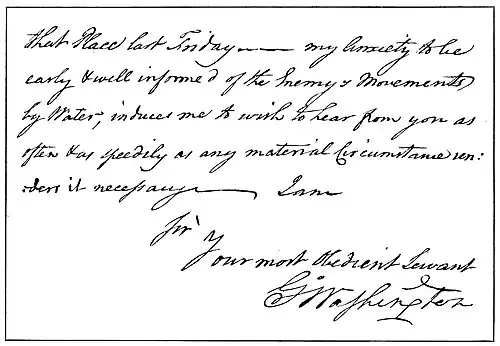 that Place last Friday —— my Anxiety to be
early & well informed of the Enemys Movements
by Water, induces me to wish to hear from you as
often & as speedily as any material Circumstance ren:
:ders it necessary —— I am
Sir
Your most Obedient Servant
Go Washington